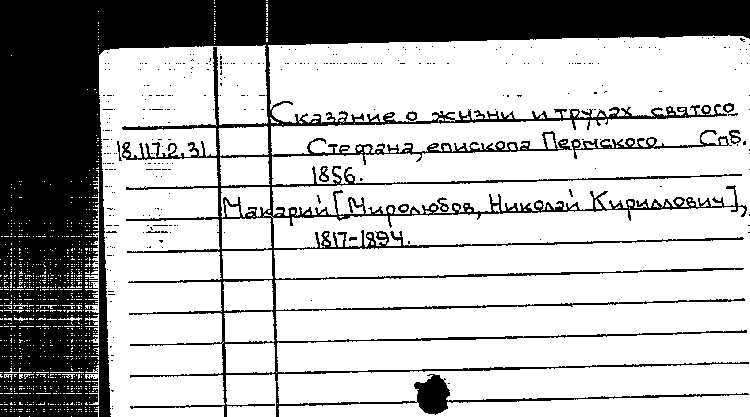 Сказание о жизни и трудах святого
18.117.2.31. Стефана, епископа Пермского. Спб.
1856.
Макарий [Миролюбов, Николай Кириллович],
1817-1894.